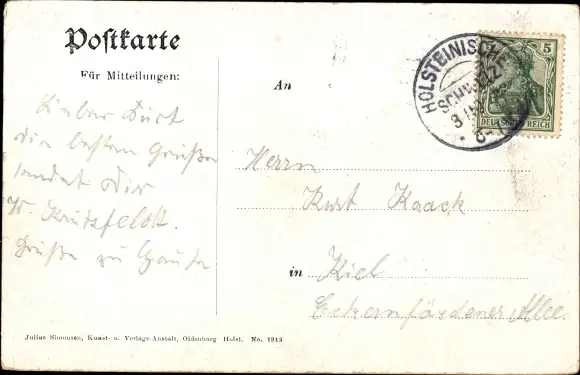 Postkarte
Für Mitteilungen:
An
Lieber Kurt
die besten Grüße
sendet Dir
W. Kreutzfeldt.
Grüße zu Hause
Herrn
Kurt Kaack
in Kiel
Eckernfördener Allee.
HOLSTEINISCHE
SCHWEIZ
5
DEUTSCHES REICH
Julius Simonsen, Kunst- u. Verlags-Anstalt, Oldenburg Holst. No. 1913